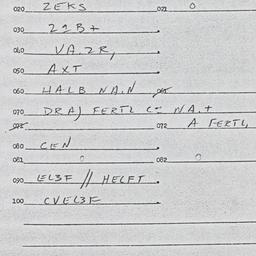 020 ZEKS 021 0
030 21B+
040 VA.2R,
050 AXT
060 HALB NA.N 061
070 DRAJ FERTL C= NA.+
071 072 A FERTL,
080 CEN
081 0 082 0
090 EL3F // HELFT
100 CVEL3F